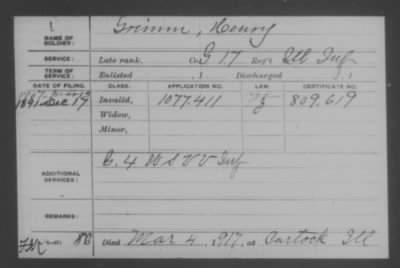 1
NAME OF SOLDIER:
Grimm, Henry
SERVICE:
Late rank, Co. G 17 Reg't Ill Inf
TERM OF SERVICE:
Enlisted , 1 Discharged , 1
DATE OF FILING. CLASS. APPLICATION NO. LAW. CERTIFICATE NO.
1891 Dec 17 Invalid, 1077.411 809.619
Widow,
Minor,
C. 4 U S V V Inf
ADDITIONAL SERVICES:
REMARKS:
Died Mar 4, 1917, at Carlock Ill